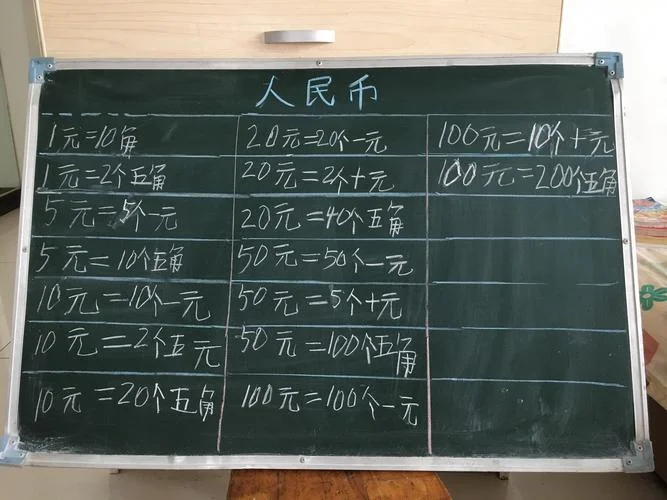 人民币
1元=10角
1元=2个五角
5元=5个一元
5元=10个五角
10元=10个一元
10元=2个五元
10元=20个五角
20元=20个一元
20元=2个十元
20元=40个五角
50元=50个一元
50元=5个十元
50元=100个五角
100元=100个一元
100元=10个十元
100元=200个五角